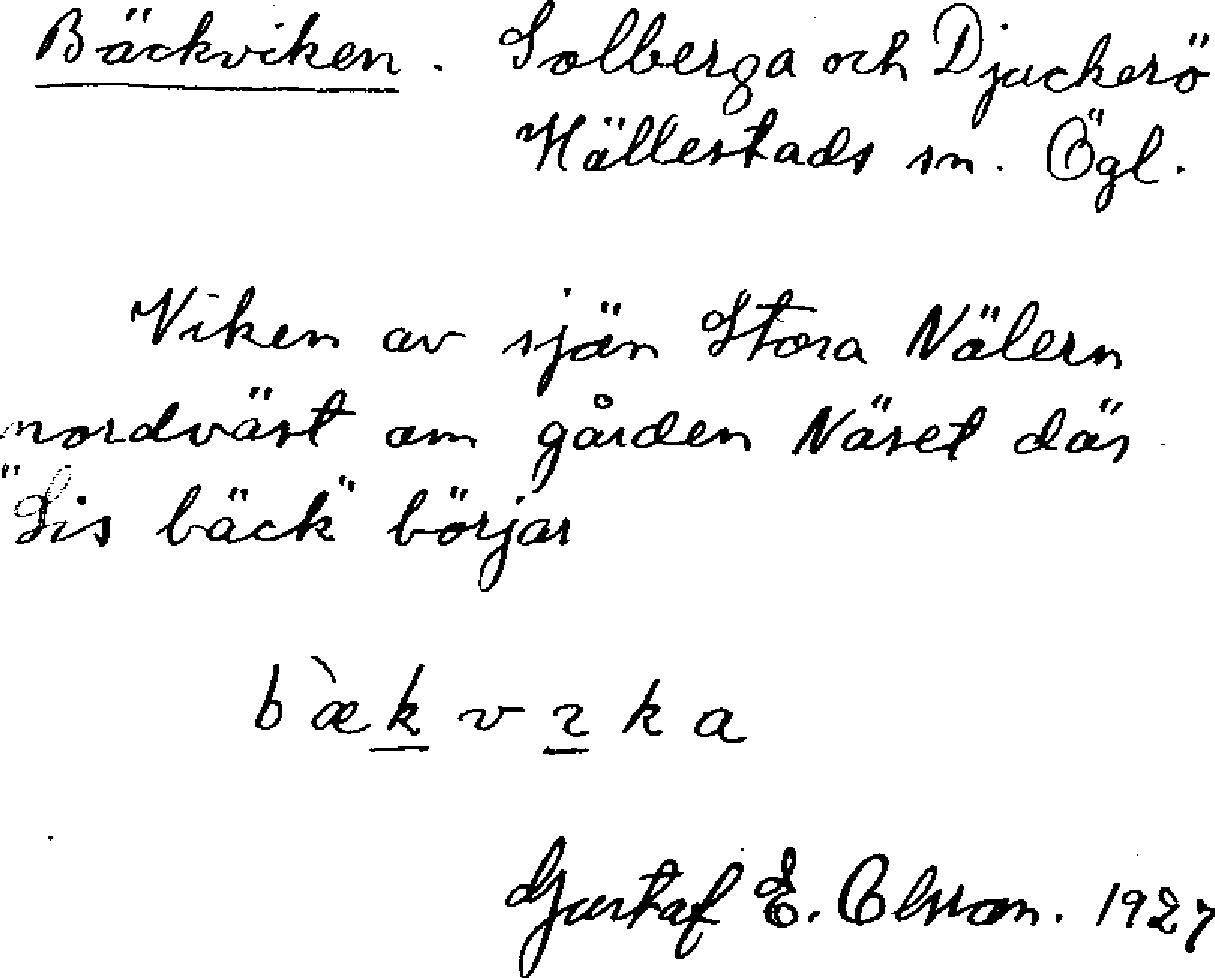 Bäckviken. Solberga och Djuckerö
Hällestads sn. Ögl.
Viken av sjön Stora Nälern
nordväst om gården Näset där
"Lis bäck" börjar
b æ̀ k v ɩ k a
Gustaf E. Olsson. 1927